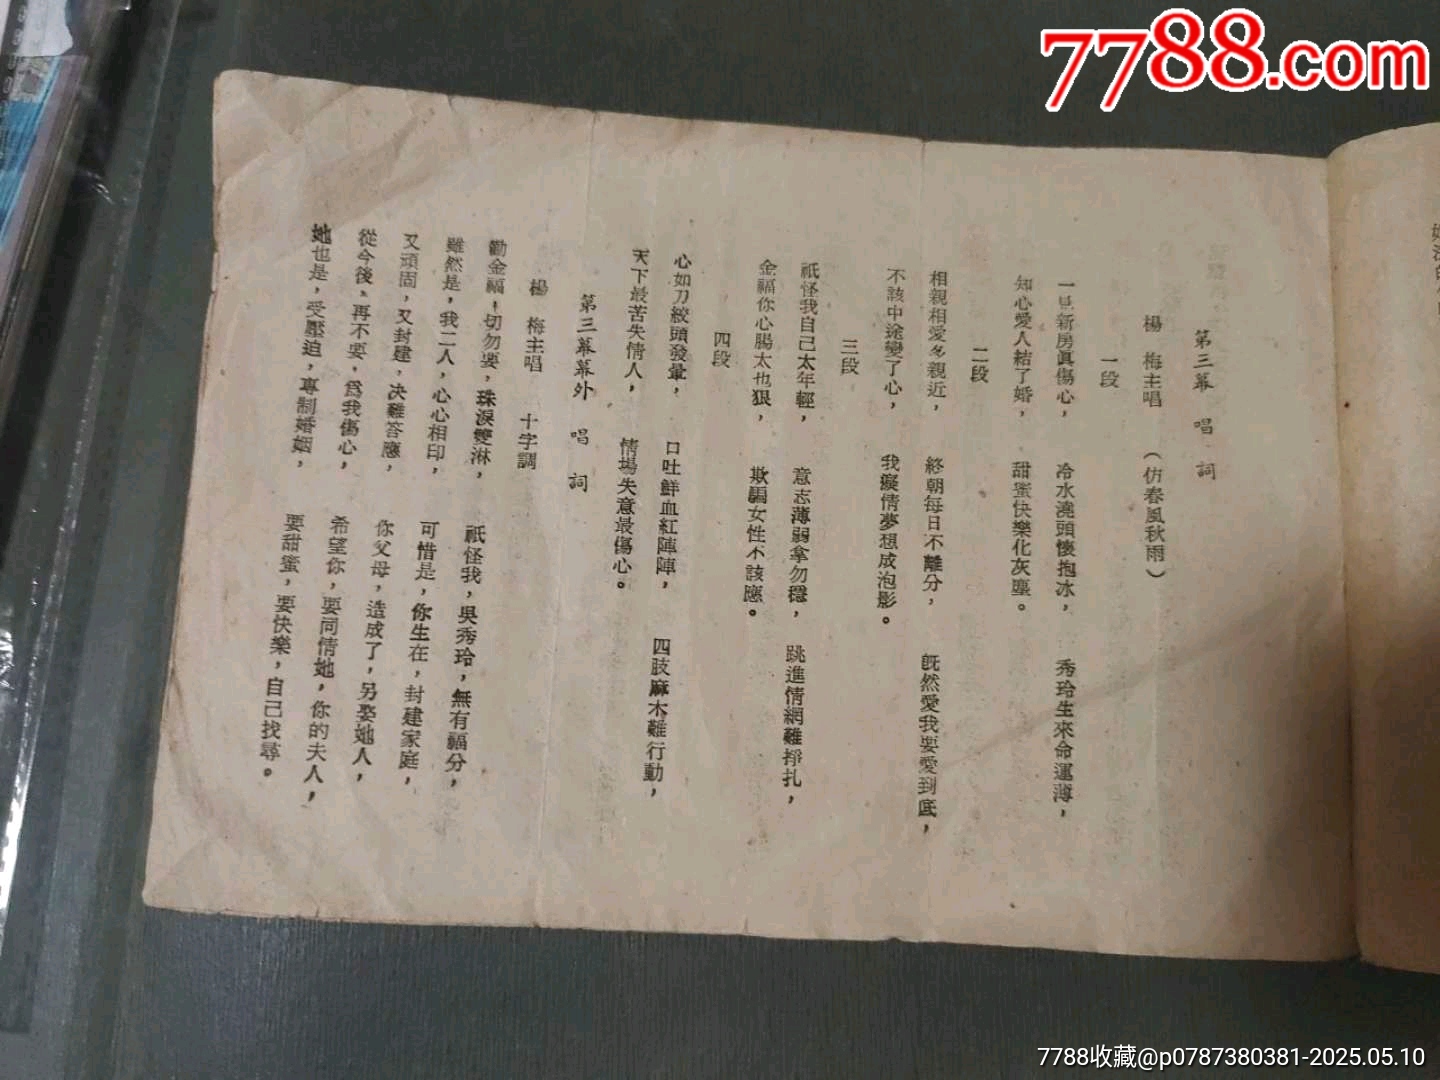 7788.com
第三幕 唱 詞
楊 梅主唱 (仿春風秋雨)
一段
一見新房眞傷心， 冷水澆頭懷抱冰， 秀玲生來命運薄，
知心愛人結了婚， 甜蜜快樂化灰塵。
二段
相親相愛多親近， 終朝每日不離分， 旣然愛我要愛到底，
不該中途變了心， 我癡情夢想成泡影。
三段
祇怪我自己太年輕， 意志薄弱拿勿穩， 跳進情網難掙扎，
金福你心腸太也狠， 欺騙女性不該應。
四段
心如刀絞頭發暈， 口吐鮮血紅陣陣， 四肢麻木難行動，
天下最苦失情人， 情場失意最傷心。
第三幕幕外 唱 詞
楊 梅主唱 十字調
勸金福，切勿要，珠淚雙淋， 祇怪我，吳秀玲，無有福分，
雖然是，我二人，心心相印， 可惜是，你生在，封建家庭，
又頑固，又封建，决難答應， 你父母，造成了，另娶她人，
從今後，再不要，爲我傷心， 希望你，要同情她，你的夫人，
她也是，受壓迫，專制婚姻， 要甜蜜，要快樂，自己找尋。
7788收藏@p0787380381-2025.05.10